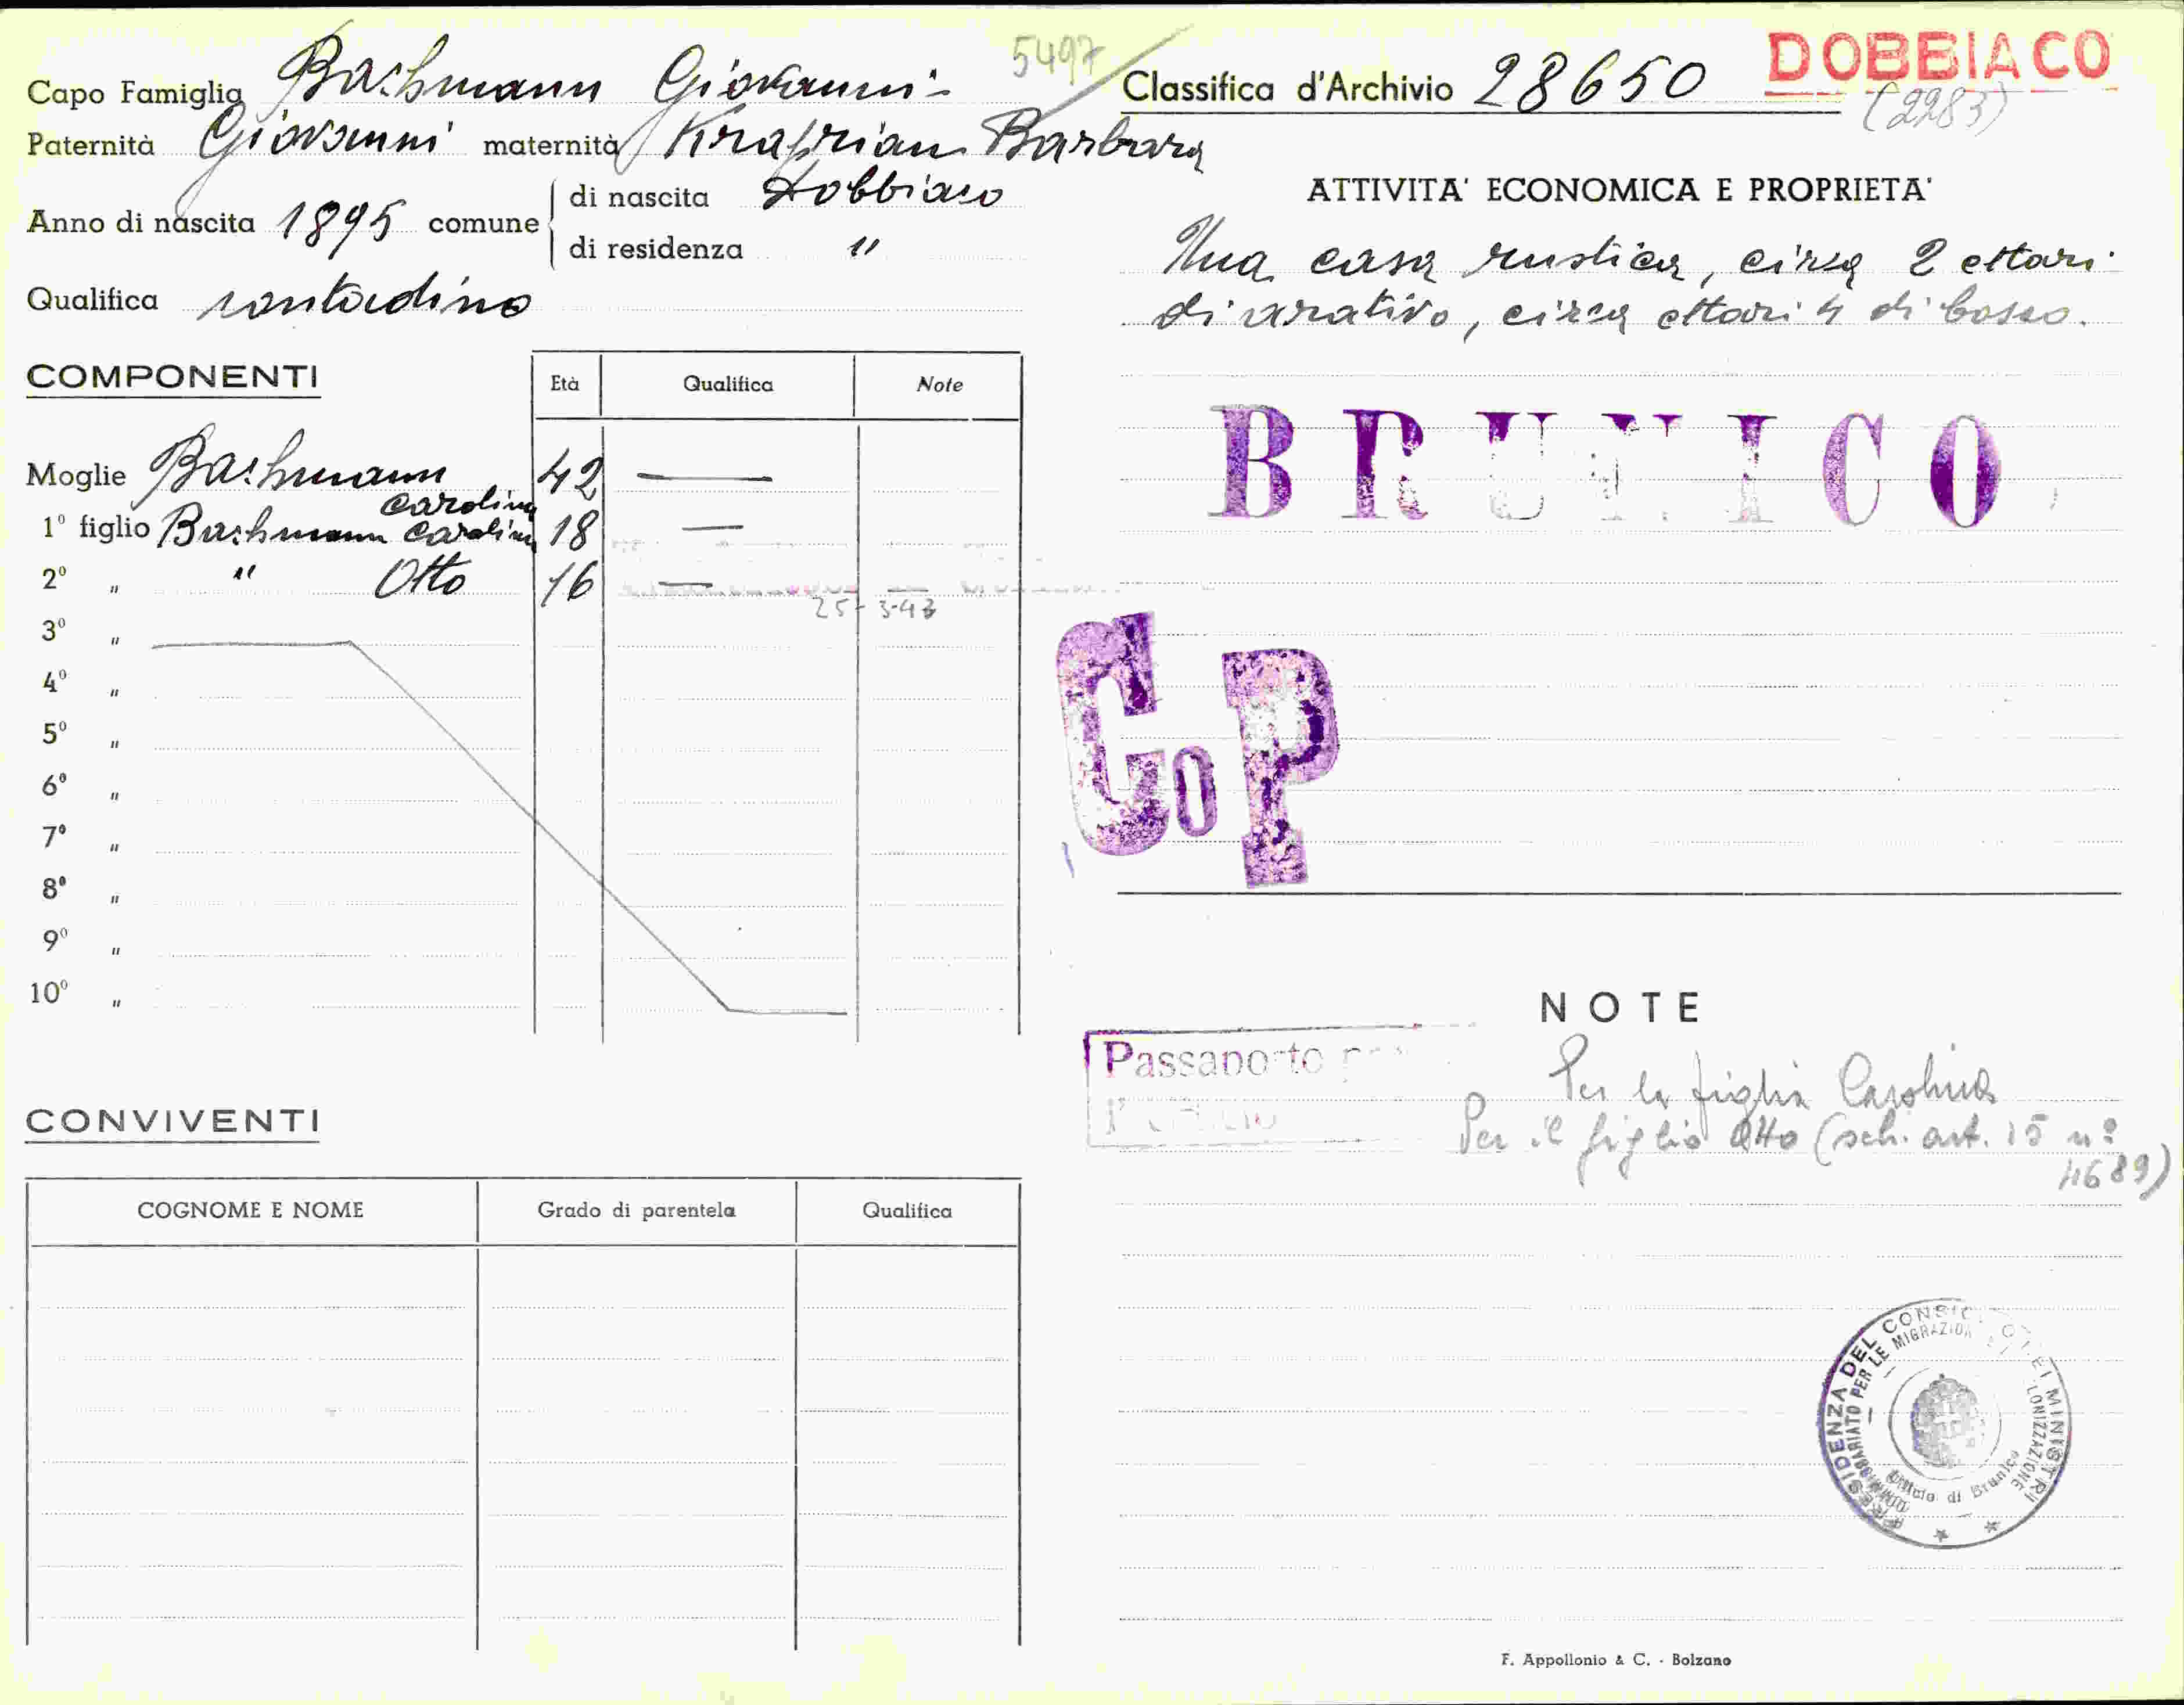 5497
Capo Famiglia Bachmann Giovanni
Paternità Giovanni maternità Barbara
Anno di nascita 1895 comune
di nascita Dobbiaco
di residenza "
Qualifica contadino
COMPONENTI
Età Qualifica Note
Moglie Bachmann Carolina 42 —
1º figlio Bachmann Carolina 18 —
2º " " Otto 16 —
25-3-43
3º "
4º "
5º "
6º "
7º "
8º "
9º "
10º "
CONVIVENTI
COGNOME E NOME Grado di parentela Qualifica
Classifica d'Archivio 28650
DOBBIACO
(2283)
ATTIVITA' ECONOMICA E PROPRIETA'
Una casa rustica, circa 2 ettari
di arativo, circa ettari 4 di bosco.
BRUNICO
CoP
NOTE
Passaporto
Per la figlia Carolina
Per il figlio Otto (sch. art. 15 nº
4689)
PRESIDENZA DEL CONSIGLIO DEI MINISTRI
COMMISSARIATO PER LE MIGRAZIONI COLONIZZAZIONE
Ufficio di Brunico
F. Appollonio & C. - Bolzano